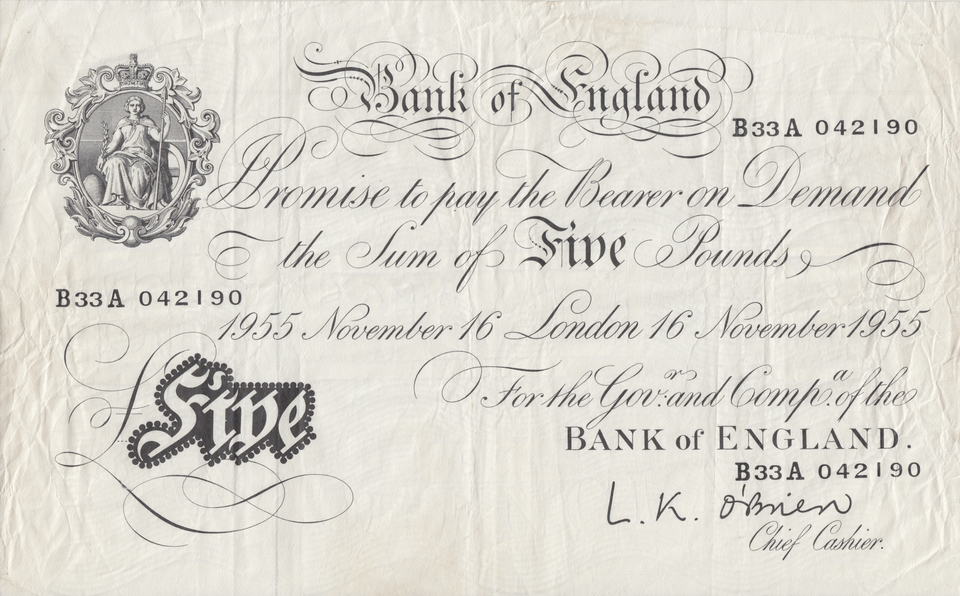 Bank of England
B33A 042190
Promise to pay the Bearer on Demand
the Sum of Five Pounds,
B33A 042190
1955 November 16 London 16 November 1955
£Five
For the Govr. and Compa. of the
BANK of ENGLAND.
B33A 042190
L. K. O'Brien
Chief Cashier.